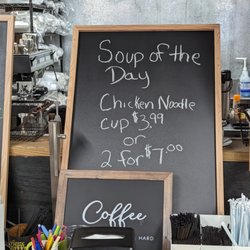 Soup of the
Day
Chicken Noodle
cup $3.99
or
2 for $7.00
Coffee
HARD